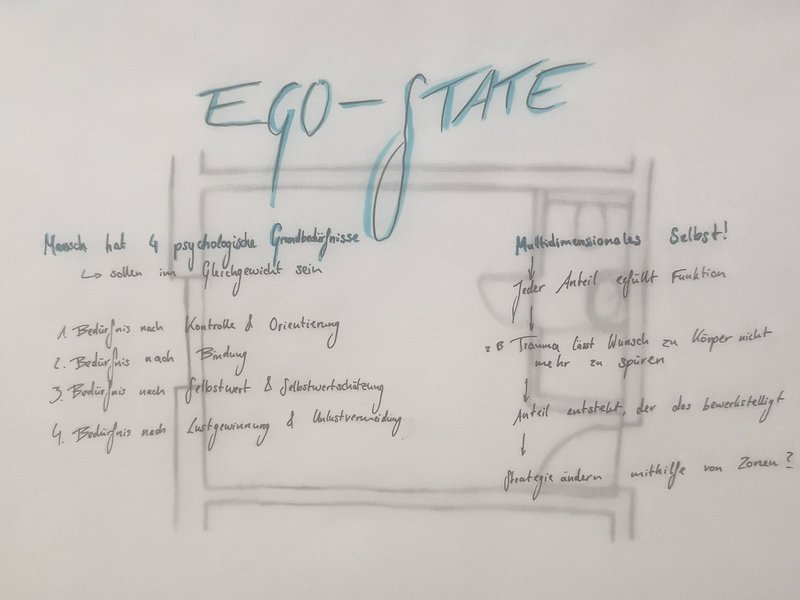 EGO-STATE
Mensch hat 4 psychologische Grundbedürfnisse
↳ sollen im Gleichgewicht sein
1. Bedürfnis nach Kontrolle & Orientierung
2. Bedürfnis nach Bindung
3. Bedürfnis nach Selbstwert & Selbstwertschätzung
4. Bedürfnis nach Lustgewinnung & Unlustvermeidung
Multidimensionales Selbst!
Jeder Anteil erfüllt Funktion
z B Trauma lässt Wunsch zu Körper nicht
mehr zu spüren
Anteil entsteht, der das bewerkstelligt
Strategie ändern mithilfe von Zonen?